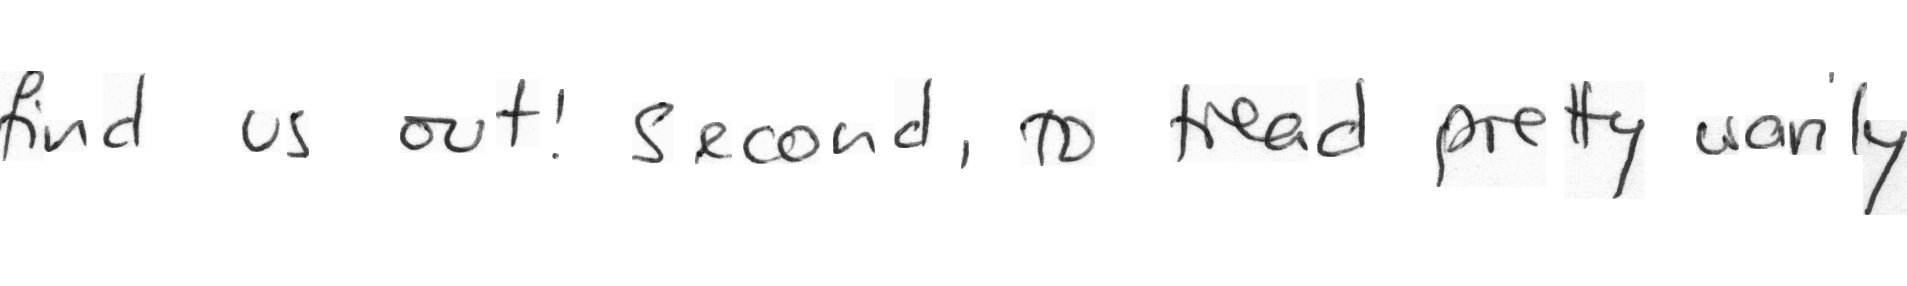 find us out! Second, to tread pretty warily